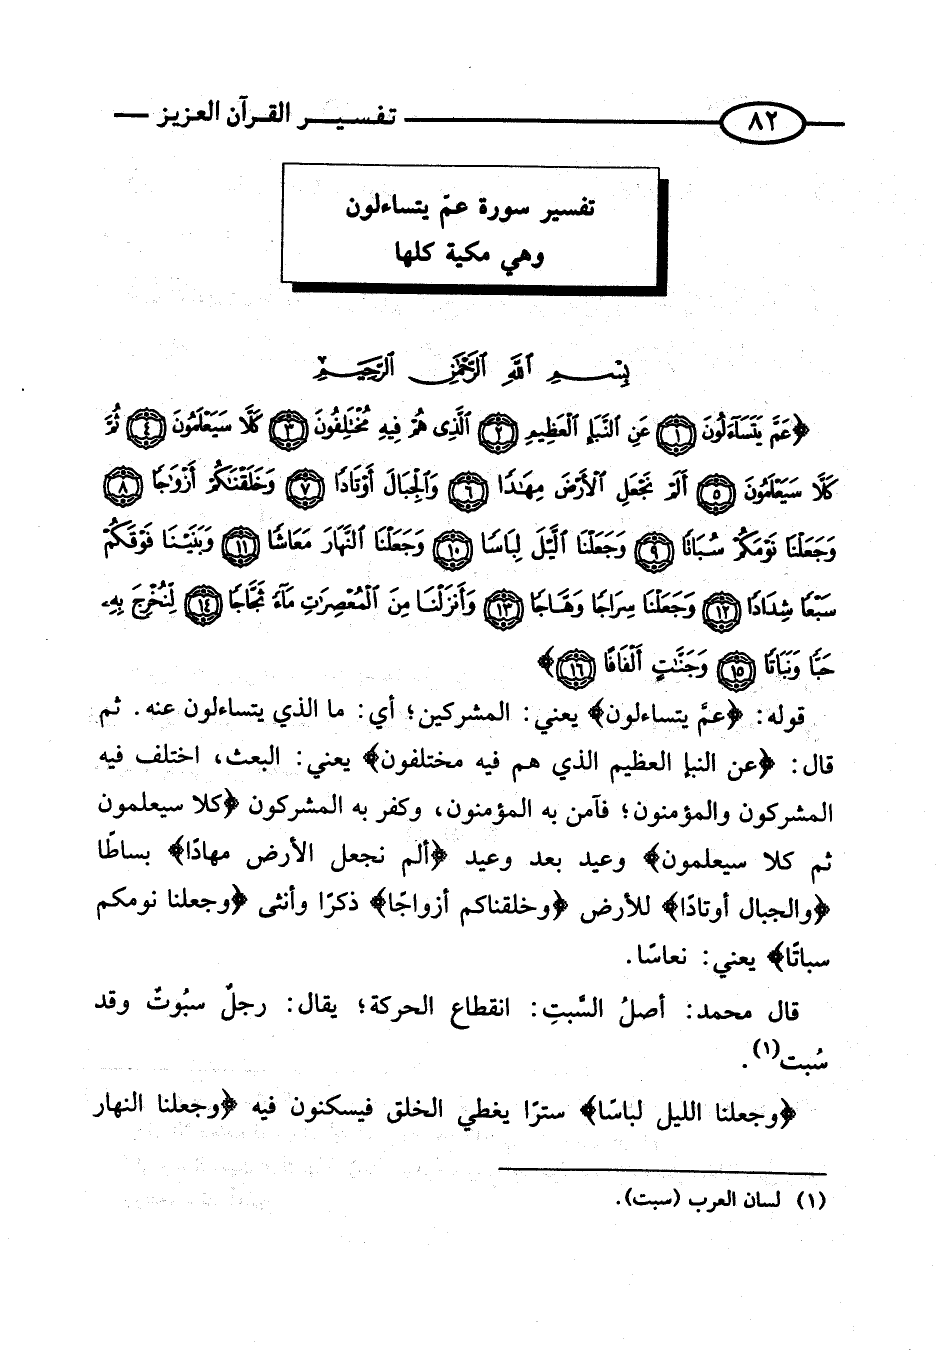 ٨٢ تفسير القرآن العزيز
تفسير سورة عمّ يتساءلون
وهي مكية كلها
بِسْمِ اللَّهِ الرَّحْمَٰنِ الرَّحِيمِ
﴿عَمَّ يَتَسَآءَلُونَ ١ عَنِ النَّبَإِ الْعَظِيمِ ٢ الَّذِى هُمْ فِيهِ مُخْتَلِفُونَ ٣ كَلَّا سَيَعْلَمُونَ ٤ ثُمَّ
كَلَّا سَيَعْلَمُونَ ٥ أَلَمْ نَجْعَلِ الْأَرْضَ مِهَٰدًا ٦ وَالْجِبَالَ أَوْتَادًا ٧ وَخَلَقْنَٰكُمْ أَزْوَٰجًا ٨
وَجَعَلْنَا نَوْمَكُمْ سُبَاتًا ٩ وَجَعَلْنَا الَّيْلَ لِبَاسًا ١٠ وَجَعَلْنَا النَّهَارَ مَعَاشًا ١١ وَبَنَيْنَا فَوْقَكُمْ
سَبْعًا شِدَادًا ١٢ وَجَعَلْنَا سِرَاجًا وَهَّاجًا ١٣ وَأَنزَلْنَا مِنَ الْمُعْصِرَٰتِ مَآءً ثَجَّاجًا ١٤ لِّنُخْرِجَ بِهِۦ
حَبًّا وَنَبَاتًا ١٥ وَجَنَّٰتٍ أَلْفَافًا ١٦﴾
قوله: ﴿عمَّ يتساءلون﴾ يعني: المشركين؛ أي: ما الذي يتساءلون عنه. ثم
قال: ﴿عن النبإ العظيم الذي هم فيه مختلفون﴾ يعني: البعث، اختلف فيه
المشركون والمؤمنون؛ فآمن به المؤمنون، وكفر به المشركون ﴿كلا سيعلمون
ثم كلا سيعلمون﴾ وعيد بعد وعيد ﴿ألم نجعل الأرض مهادًا﴾ بساطًا
﴿والجبال أوتادًا﴾ للأرض ﴿وخلقناكم أزواجًا﴾ ذكرًا وأنثى ﴿وجعلنا نومكم
سباتًا﴾ يعني: نعاسًا.
قال محمد: أصلُ السَّبتِ: انقطاع الحركة؛ يقال: رجلٌ سبُوتٌ وقد
سُبت(١).
﴿وجعلنا الليل لباسًا﴾ سترًا يغطي الخلق فيسكنون فيه ﴿وجعلنا النهار
(١) لسان العرب (سبت).